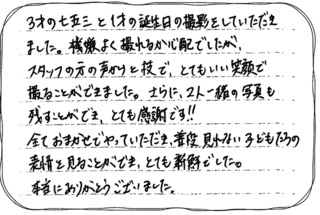 3才の七五三と1才の誕生日の撮影をしていただき
ました。機嫌よく撮れるか心配でしたが、
スタッフの方の声かけと技で、とてもいい笑顔で
撮ることができました。さらに、2人一緒の写真も
残すことができ、とても感謝です!!
全ておまかせでやっていただき、普段見れない子どもたちの
表情を見ることができ、とても新鮮でした。
本当にありがとうございました。